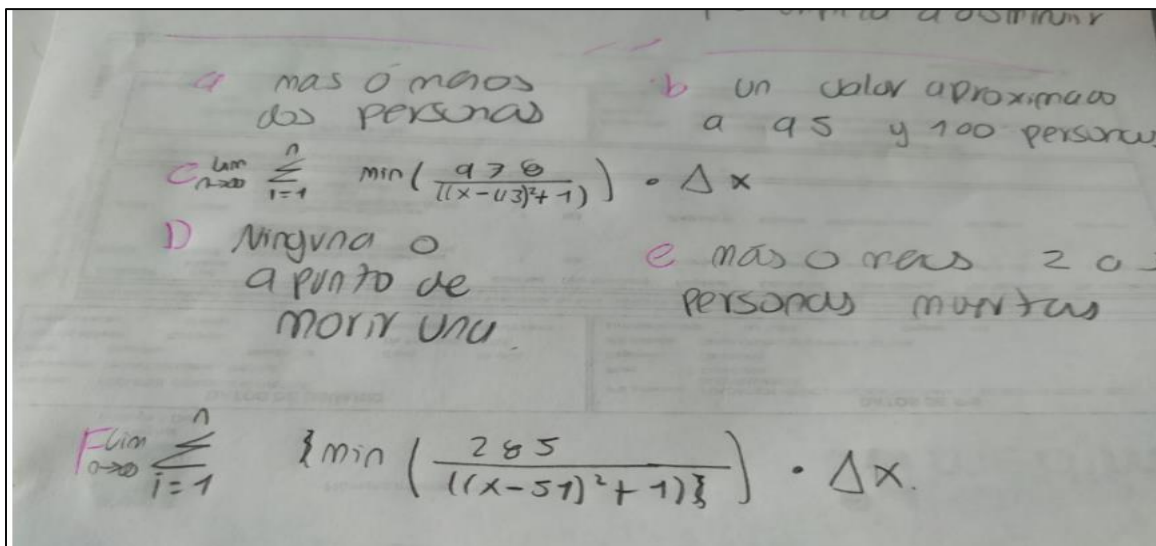 a disminuir
a mas o menos
dos personas
b un valor aproximado
a 95 y 100 personas
C lim n→∞ n Σ i=1 min( 978 / ((x-43)²+1) ) • Δx
D Ninguna o
apunto de
morir una.
e mas o meos 2 o
personas muertas
F lim n→∞ n Σ i=1 {min ( 285 / ((x-51)²+1)} ) • Δx.